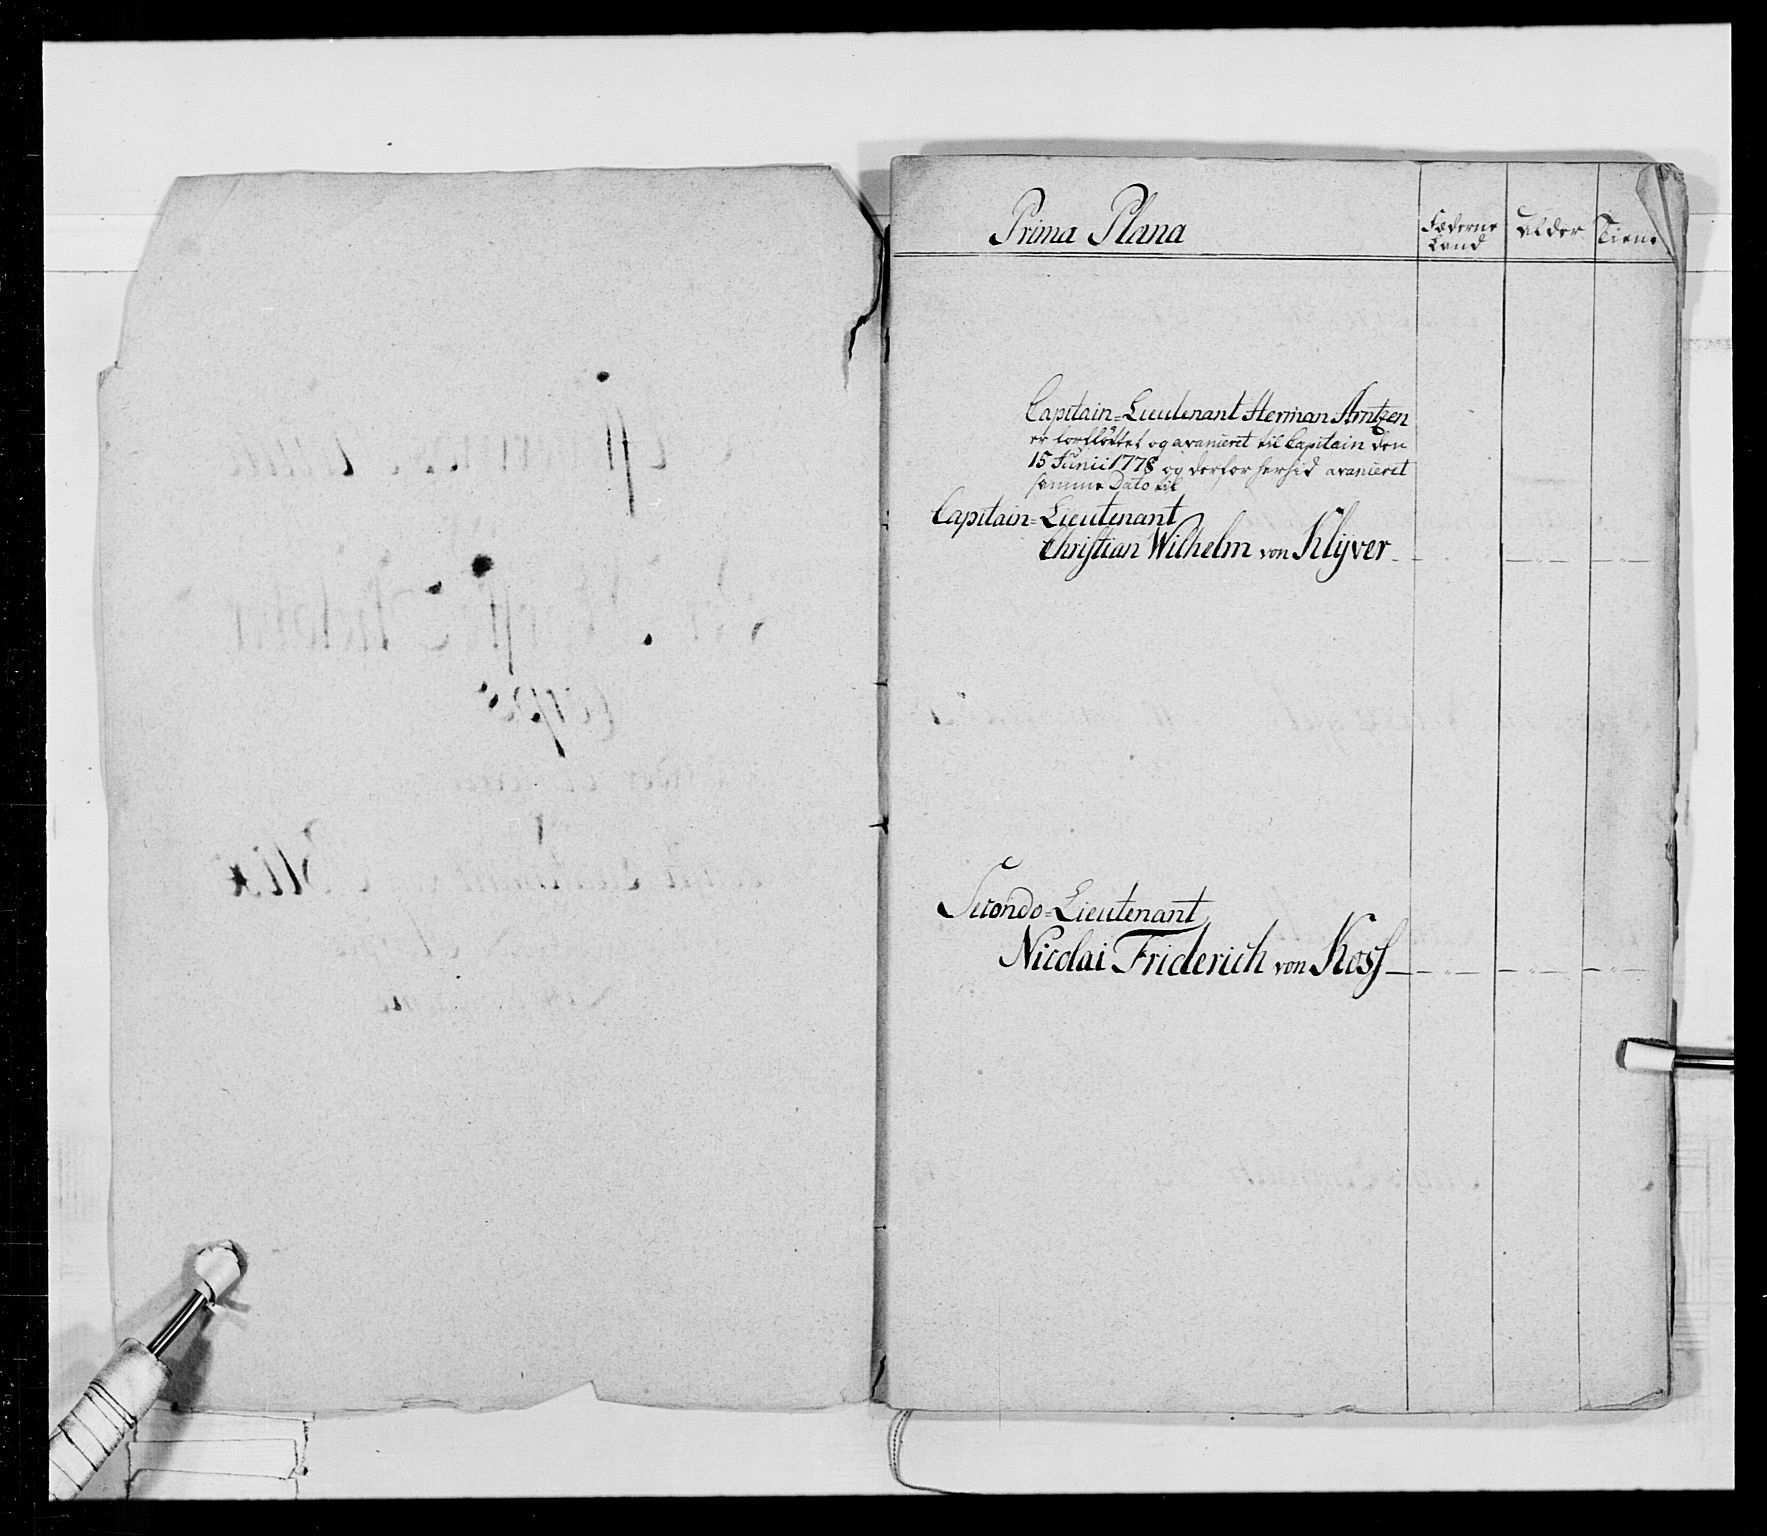 Prima Plana
Fæderne Land
Alder
Tiene
Capitain=Lieutenant Herman Arntzen
er forflöttet og avanieret til Capitain den
15 Junii 1778 og derfor herhid avanieret
samme Dato til
Capitain=Lieutenant
Christian Wilhelm von Klÿver
Secondo=Lieutenant
Nicolai Friderich von Koss